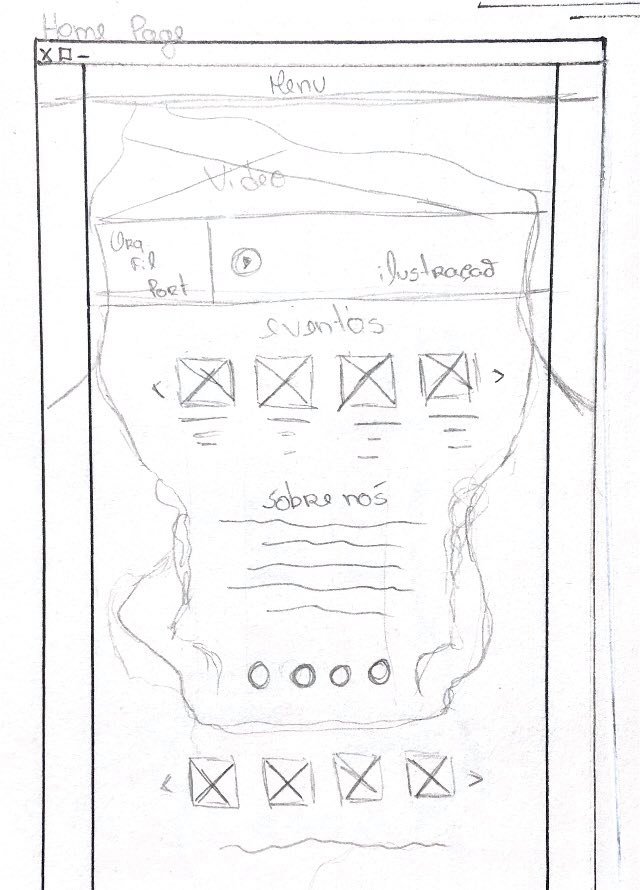 Home Page
Menu
Video
Orq.
Fil
Port
ilustraçaõ
eventos
sobre nós